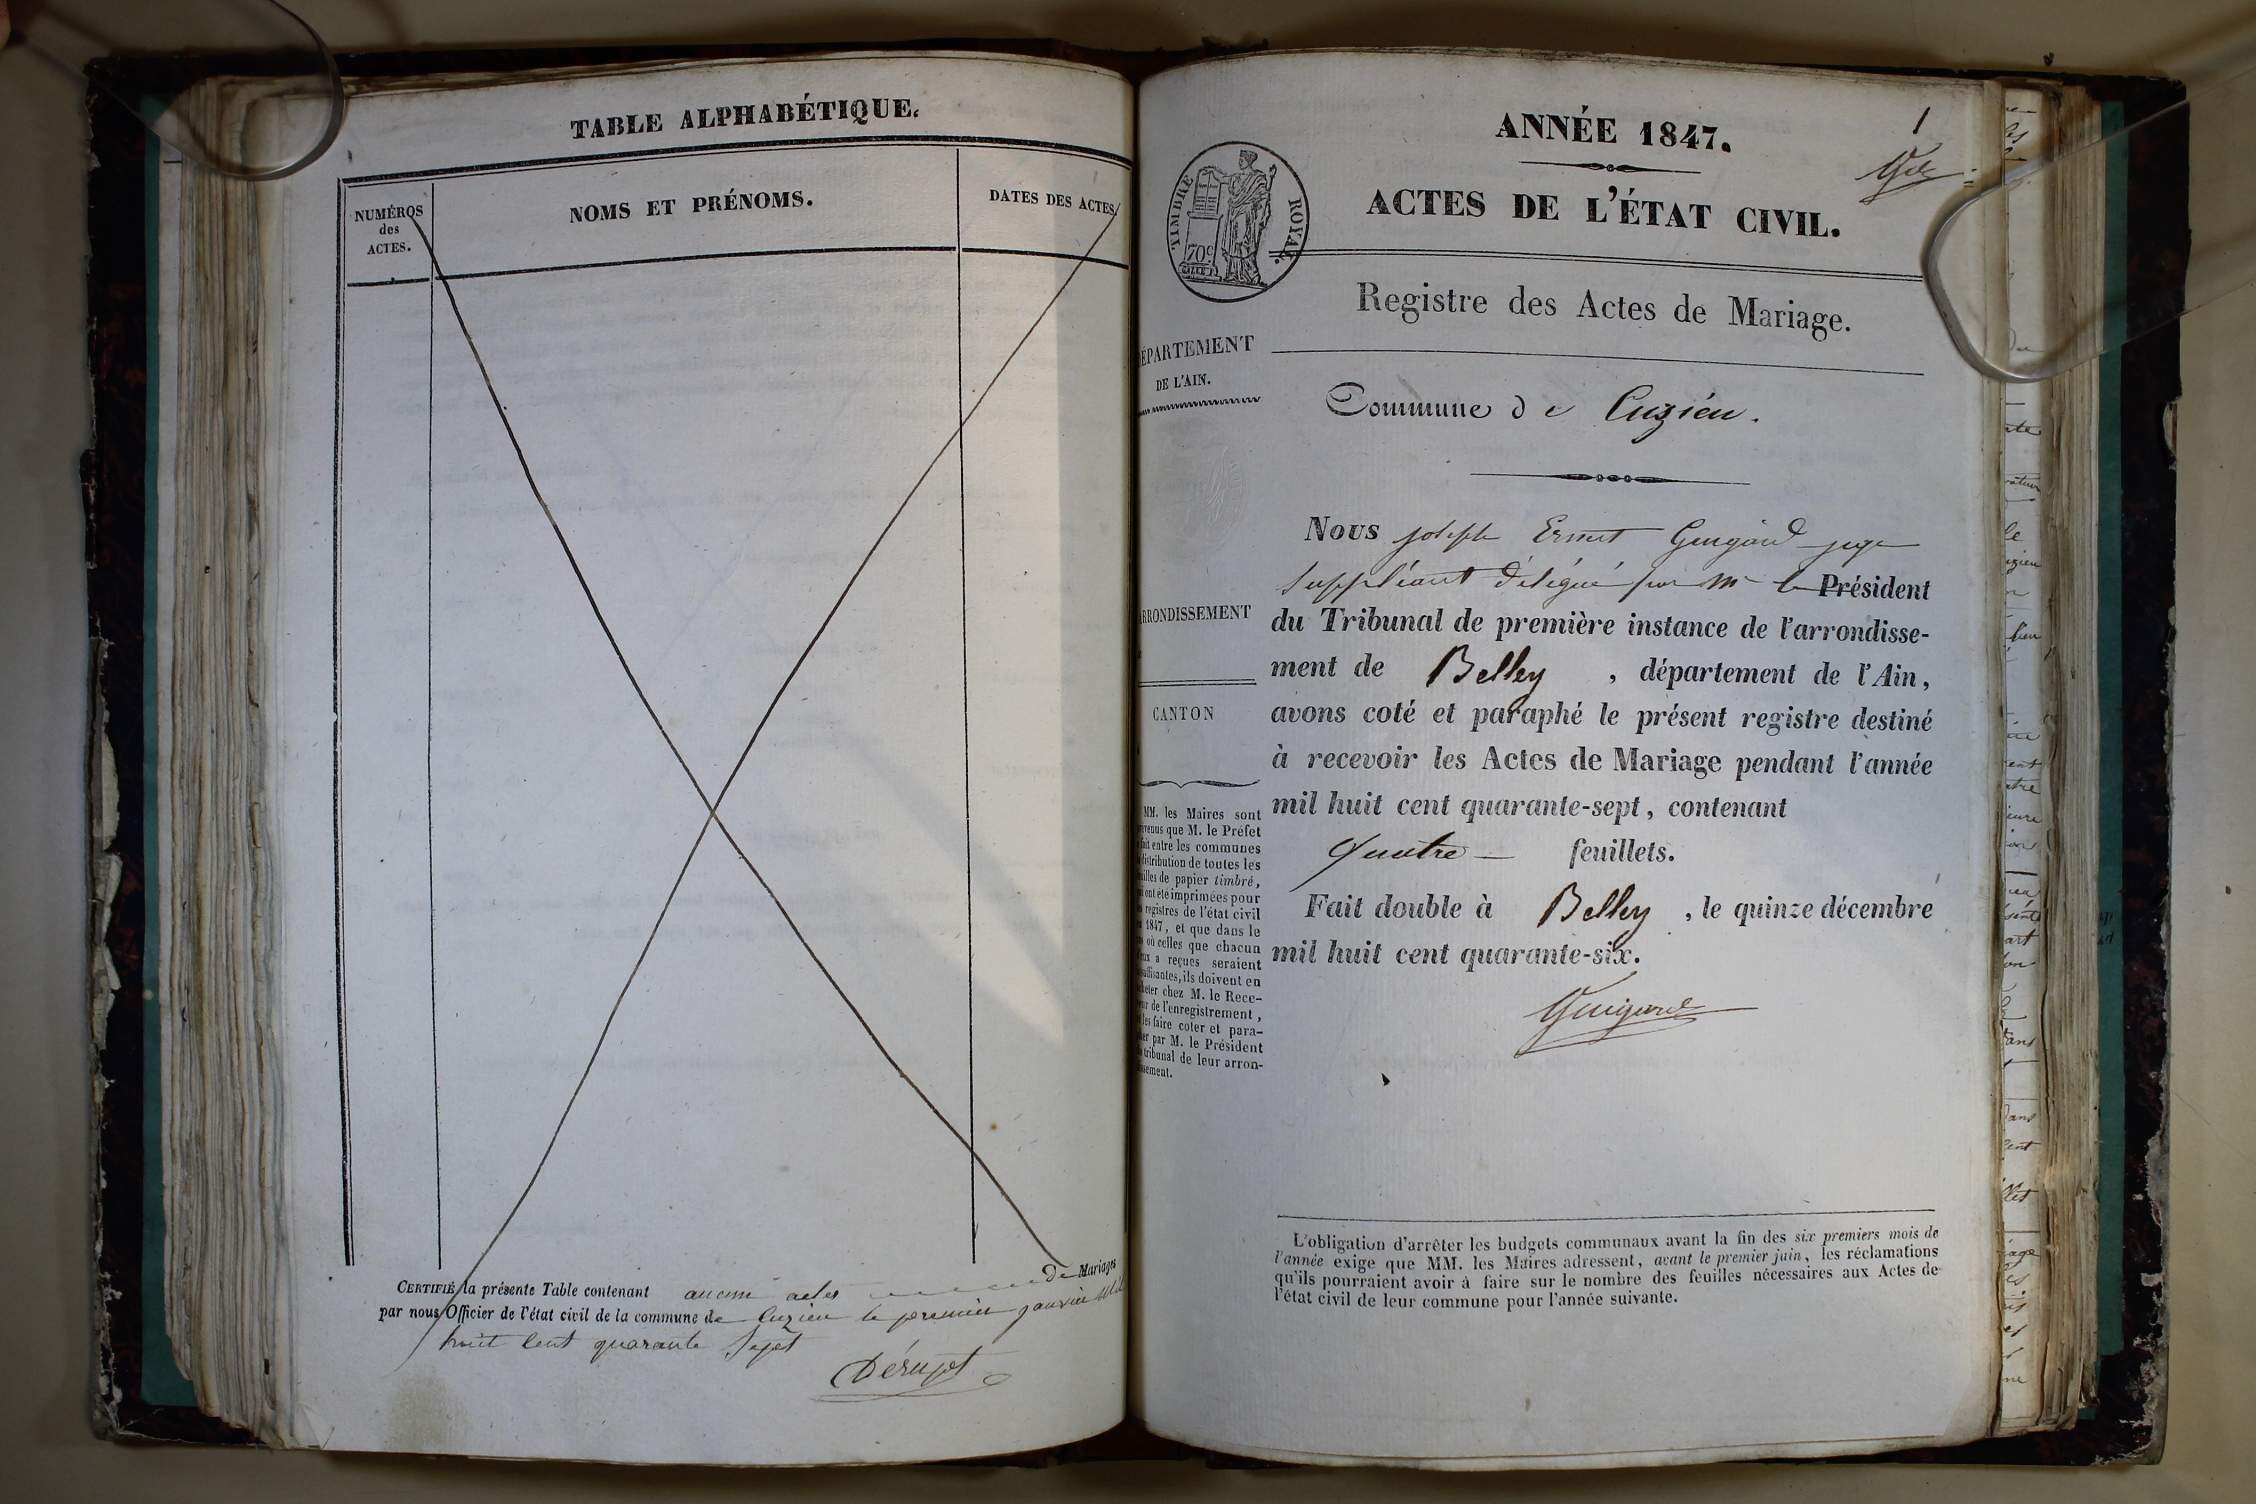 TABLE ALPHABÉTIQUE.
NUMÉROS
des
ACTES.
NOMS ET PRÉNOMS.
DATES DES ACTES.
CERTIFIÉ la présente Table contenant aucun actes de Mariages
par nous Officier de l'état civil de la commune de Cuzieu le premier janvier mil
huit cent quarante sept
Dérupt
1
ANNÉE 1847.
ACTES DE L'ÉTAT CIVIL.
TIMBRE ROYAL.
70c
Registre des Actes de Mariage.
DÉPARTEMENT
DE L'AIN.
Commune de Cuzieu.
ARRONDISSEMENT
CANTON
MM. les Maires sont
prévenus que M. le Préfet
a fait entre les communes
la distribution de toutes les
feuilles de papier timbré,
qui ont été imprimées pour
les registres de l'état civil
de 1847, et que dans le
cas où celles que chacun
d'eux a reçues seraient
insuffisantes, ils doivent en
acheter chez M. le Rece-
veur de l'enregistrement,
et les faire coter et para-
pher par M. le Président
du tribunal de leur arron-
dissement.
Nous joseph Ernest Guigard juge
suppléant délégué par Mr le Président
du Tribunal de première instance de l'arrondisse-
ment de Belley, département de l'Ain,
avons coté et paraphé le présent registre destiné
à recevoir les Actes de Mariage pendant l'année
mil huit cent quarante-sept, contenant
quatre feuillets.
Fait double à Belley, le quinze décembre
mil huit cent quarante-six.
Guigard
L'obligation d'arrêter les budgets communaux avant la fin des six premiers mois de
l'année exige que MM. les Maires adressent, avant le premier juin, les réclamations
qu'ils pourraient avoir à faire sur le nombre des feuilles nécessaires aux Actes de
l'état civil de leur commune pour l'année suivante.